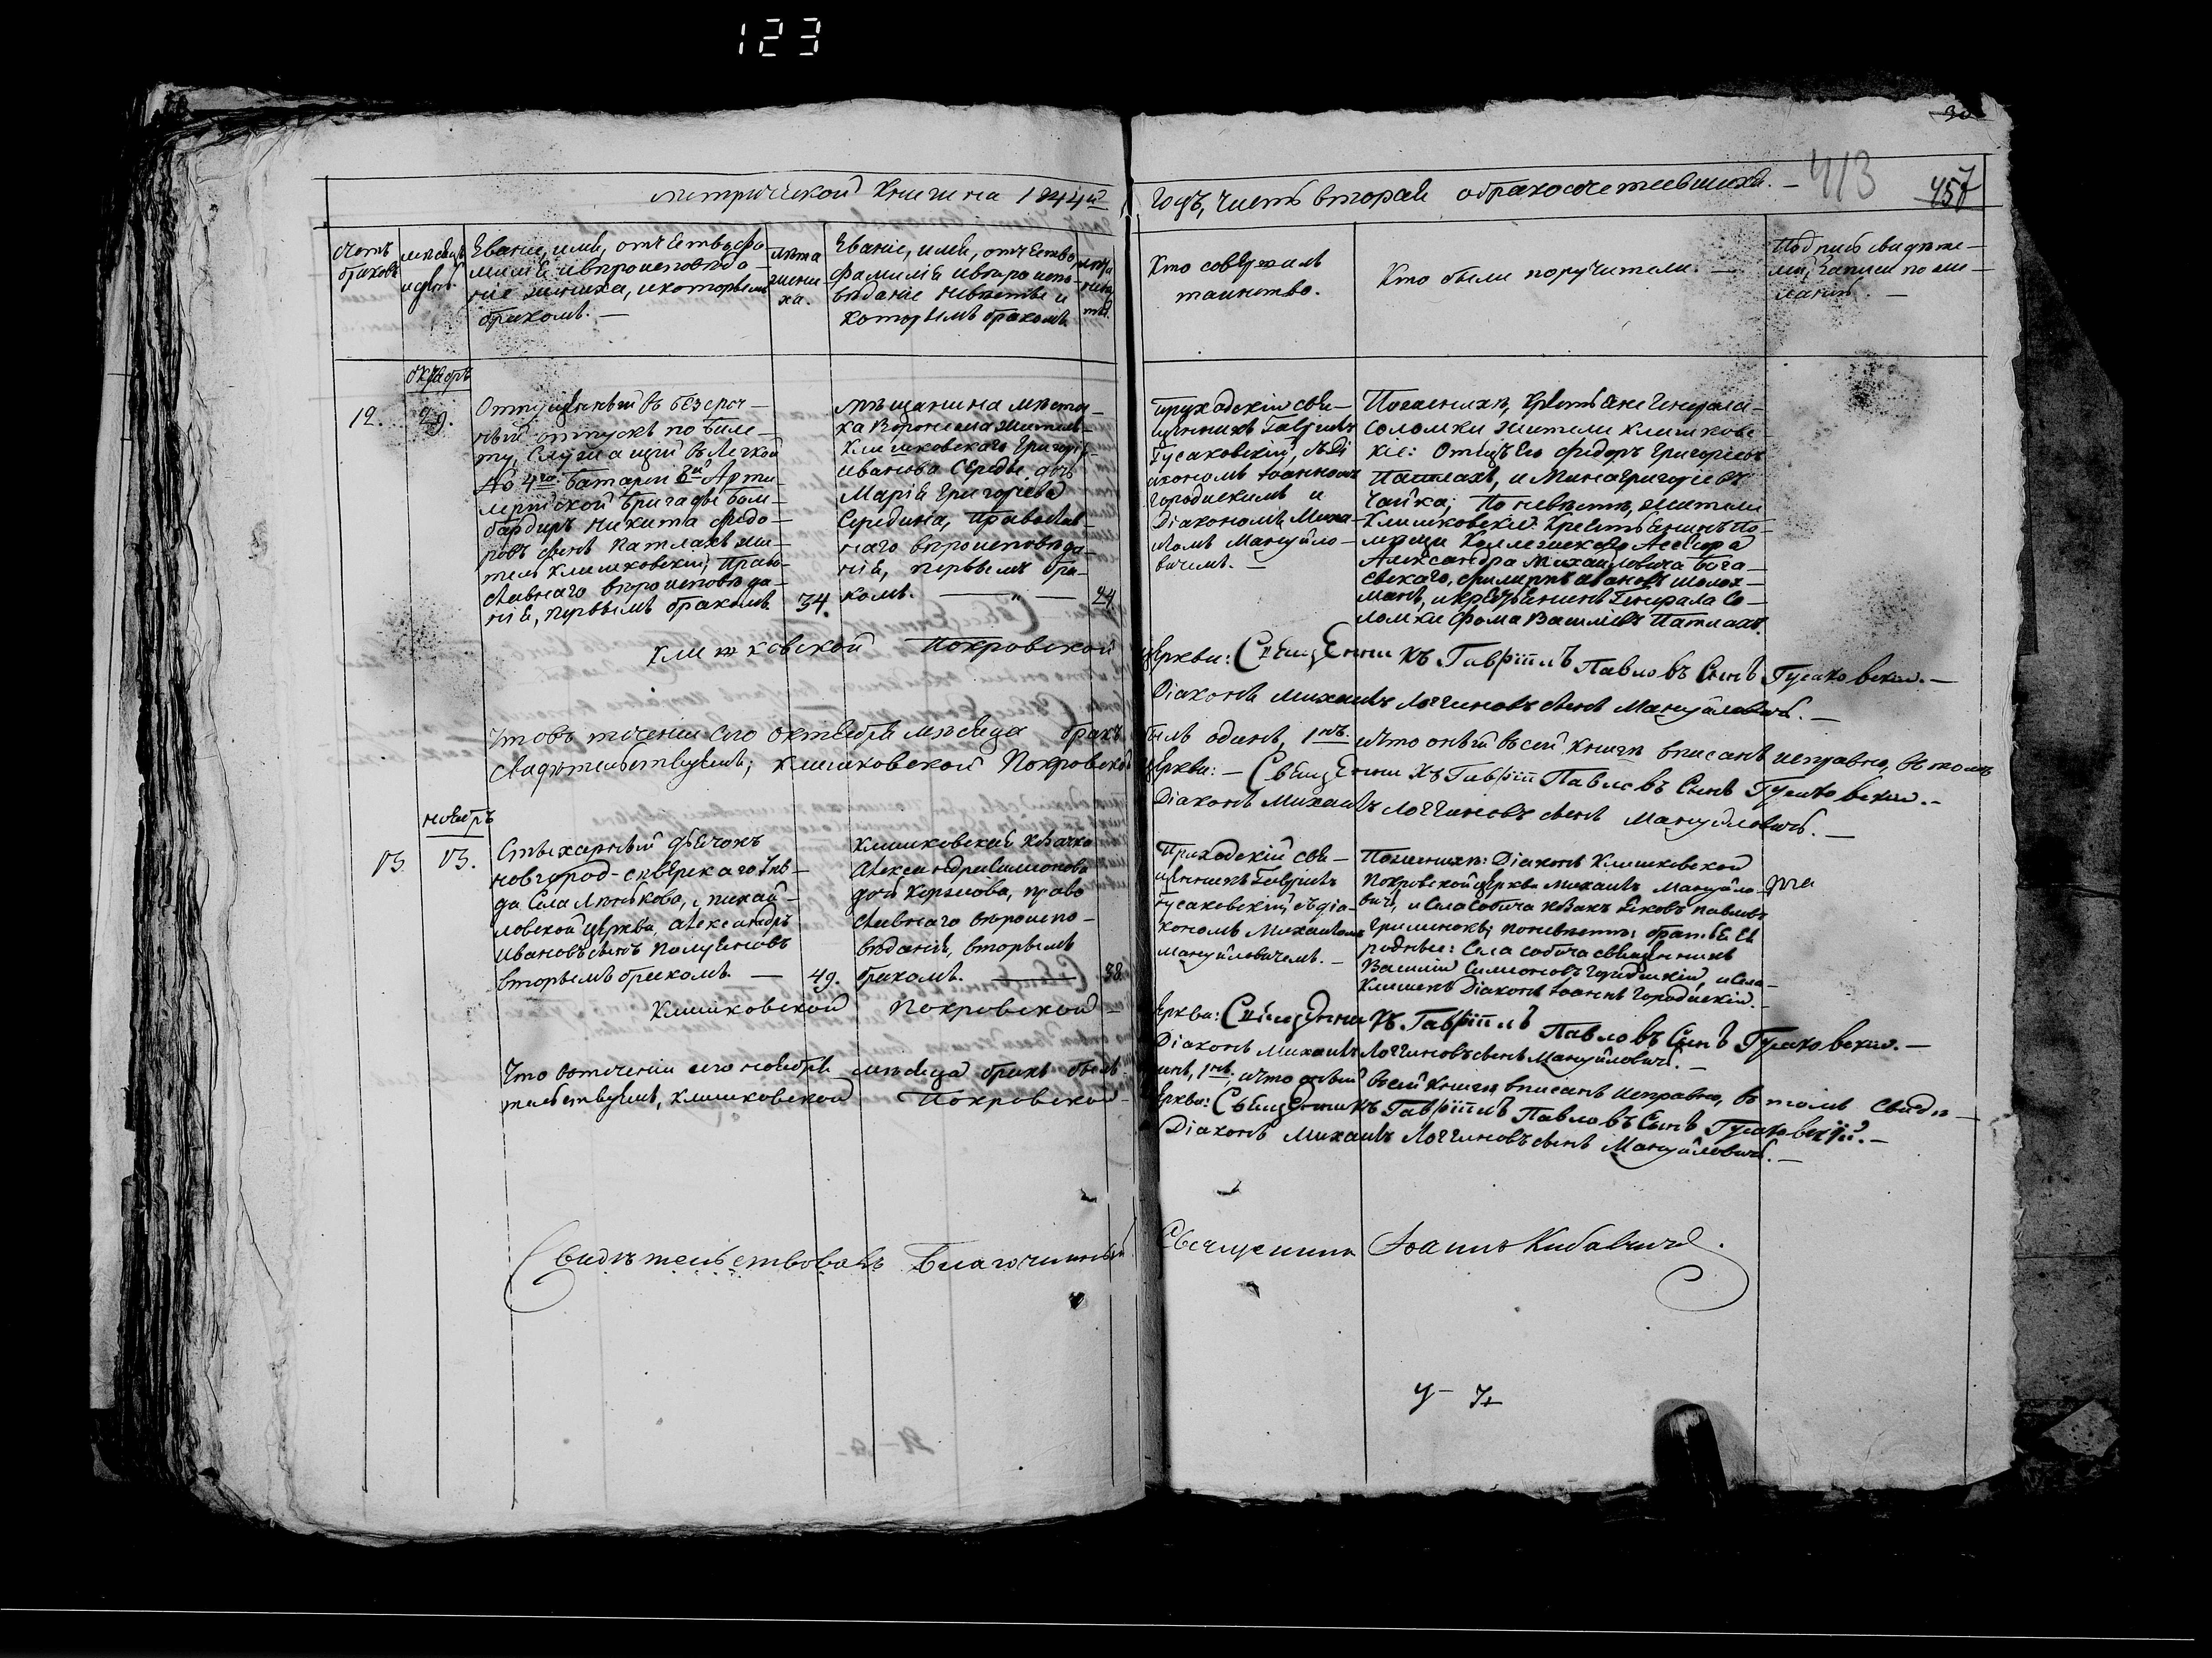 123
30
метрической книги на 1844й
годъ, часть вторая о бракосочетавшихся. —
413
457
Счетъ браковъ
месяцъ и день
Званіе, имя, отчество, фа
милія и вероисповѣда
ніе жениха, и которымъ
бракомъ. —
лета
жени
ха.
Званіе, имя, отчество
фамилія и вѣроиспо-
вѣданіе невѣсты и
которымъ бракомъ
Кто совершалъ
таинство.
Кто были поручители. —
Подпись свидѣте-
лей, записи по же-
ланію. —
октябрь
12.
29.
Отпущенный въ безсроч-
ный отпускъ по биле-
ту, служащій въ Легкой
№ 4го батареи Арти-
лерійской бригады бом-
бардиръ Никита Федо-
ровъ сынъ Патлахъ жи-
тель Клишковскій, Право-
славнаго вероисповѣда-
нія, первымъ бракомъ.
34.
мещанина местеч-
ка Воронежа жителя
Клишковскаго Григорія
Иванова Середы дочь
Марія Григоріева
Середина, Православ-
наго вероисповѣда-
нія, первымъ бра-
комъ. — „ —
24
приходскій свя-
щенникъ Гавріилъ
Гусаковскій, съ Ді
акономъ Іоанномъ
Городискимъ и
Діакономъ Миха-
иломъ Мануйло-
вичемъ. —
По женихѣ, крестьяне Генерала-
Соломки жители Клишковс-
кіе: Отецъ его Федоръ Григоріевъ
Патлахъ, и Мина Григоріевъ
Чайка; По невѣстѣ, жители
Клишковскіе: Крестьянинъ По-
мещи Коллежскаго Асессора
Александра Михайловича Бога-
евскаго, Филиппъ Ивановъ Молох-
, и крестьянинъ Генерала Со-
ломки Фома Васильевъ Патлахъ.
Клишковской Покровской
церкви: Священникъ Гавріилъ Павловъ Сынъ Гусаковскій. —
Діаконъ Михаилъ Логгиновъ сынъ Мануйловичъ. —
Что въ теченіи сего октября месяца бракъ
былъ одинъ, 1нъ. и что оный въ сей книге вписанъ исправно, въ томъ
свидетельствуемъ; Клишковской Покровской
церкви: — Священникъ Гавріи Павловъ Сынъ Гусаковскій. —
Діаконъ Михаилъ Логгиновъ сынъ Мануйловичъ. —
ноябрь
13.
13.
Стихарный дьячокъ
Новгород-Северскаго уѣз-
да Села , михай-
ловской церкви, Александръ
Ивановъ сынъ Полуяновъ
вторымъ бракомъ. —
49.
Клишковская козачка
Александра Симонова
дочь Коржова, право
славнаго вероиспо-
вѣданія, вторымъ
бракомъ. —
38
Приходскій свя-
щенникъ Гавріилъ
Гусаковскій, съ діа-
кономъ Михаиломъ
Мануйловичемъ. —
По женихѣ: Діаконъ Клишковской
Покровской церкви Михаилъ Мануйло-
вичъ, и села Собича козакъ Яковъ Павловъ
; по невѣстѣ: братья ея
родные: Села Собича священникъ
Василій Симоновъ Городискій, и села
Клишекъ Діаконъ Іоаннъ Городискій.
Клишковской Покровской —
церкви: Священникъ Гавріилъ Павловъ Сынъ Гусаковскій. —
Діаконъ Михаилъ Логгиновъ сынъ Мануйловичъ. —
Что въ теченіи сего ноября месяца бракъ былъ
, 1нъ, и что оный въ сей книге вписанъ исправно, въ томъ свиде-
тельствуемъ, Клишковской Покровской —
церкви: Священникъ Гавріилъ Павловъ Сынъ Гусаковскій. —
Діаконъ Михаилъ Логгиновъ сынъ Мануйловичъ. —
Свидѣтельствовалъ Благочинный
Священникъ Іоаннъ Кибальчичъ.